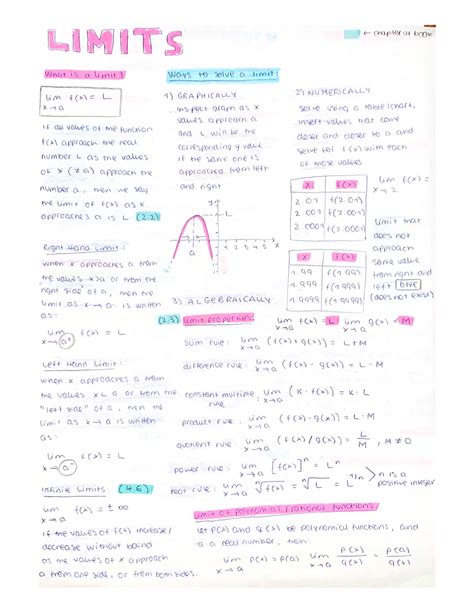 LIMITS
← chapter of book
What is a limit?
lim f(x) = L
x→a
if all values of the function
f(x) approach the real
number L as the values
of x (≠ a) approach the
number a, then we say
the limit of f(x) as x
approaches a is L (2.2)
Right Hand Limit:
when x approaches a from
the values x>a or from the
"right side" of a, then the
limit as x→a is written
as:
lim f(x) = L
x→a⁺
Left Hand Limit:
when x approaches a from
the values x<a or from the
"left side" of a, then the
limit as x→a is written
as:
lim f(x) = L
x→a⁻
Infinite Limits (4.6)
lim f(x) = ±∞
x→a
if the values of f(x) increase/
decrease without bound
as the values of x approach
a from one side, or from both sides.
Ways to solve a limit:
1) GRAPHICALLY
inspect graph as x
values approach a
and L will be the
corresponding y value
if the same one is
approached from left
and right
L
a
1 2 3 4 5 x
2) NUMERICALLY
solve using a table/chart,
insert values that come
closer and closer to a and
solve for f(x) with each
of those values
x f(x)
2.01 f(2.01)
2.001 f(2.001)
2.0001 f(2.0001)
lim f(x) =
x→2
x f(x)
1.99 f(1.99)
1.999 f(1.999)
1.9999 f(1.9999)
Limit that
does not
approach
same value
from right and
left DNE
(does not exist)
3) ALGEBRAICALLY
(2.3) limit properties: lim f(x) = L lim g(x) = M
x→a x→a
sum rule: lim (f(x)+g(x)) = L+M
x→a
difference rule: lim (f(x)-g(x)) = L-M
x→a
constant multiple rule: lim (k·f(x)) = k·L
x→a
product rule: lim (f(x)·g(x)) = L·M
x→a
quotient rule: lim (f(x)/g(x)) = L/M, M≠0
x→a
power rule: lim [f(x)]ⁿ = Lⁿ
x→a
root rule: lim ⁿ√f(x) = ⁿ√L = L^(1/n)
x→a
n is a
positive integer
Limit of polynomial/rational functions
let P(x) and Q(x) be polynomial functions, and
a a real number, then:
lim P(x) = P(a) lim P(x)/Q(x) = P(a)/Q(a)
x→a x→a